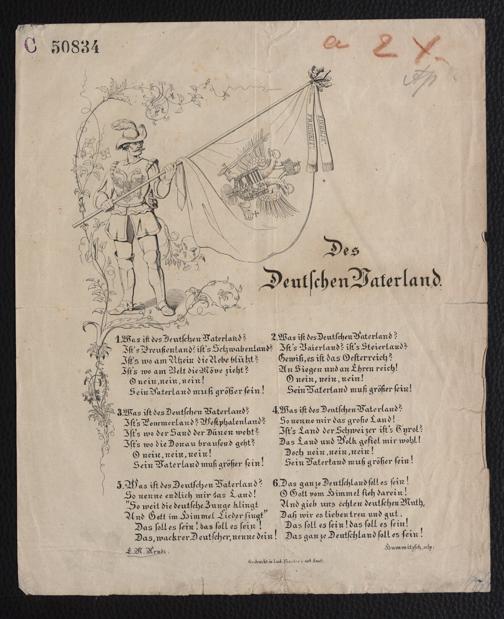 C 50834
a 2 X.
Des
Deutschen Vaterland.
1. Was ist des Deutschen Vaterland?
Ist's Preußenland? ist's Schwabenland?
Ist's wo am Rhein die Rebe blüht?
Ist's wo am Belt die Möve zieht?
O nein, nein, nein!
Sein Vaterland muß größer sein!
2. Was ist des Deutschen Vaterland?
Ist's Baierland? ist's Steierland?
Gewiß, es ist das Oesterreich?
An Siegen und an Ehren reich!
O nein, nein, nein!
Sein Vaterland muß größer sein!
3. Was ist des Deutschen Vaterland?
Ist's Pommerland? Westphalenland?
Ist's wo der Sand der Dünen weht?
Ist's wo die Donau brausend geht?
O nein, nein, nein!
Sein Vaterland muß größer sein!
4. Was ist des Deutschen Vaterland?
So nenne mir das große Land!
Ist's Land der Schweizer ist's Tyrol?
Das Land und Volk gefiel mir wohl!
Doch nein, nein, nein!
Sein Vaterland muß größer sein!
5. Was ist des Deutschen Vaterland?
So nenne endlich mir das Land!
"So weit die deutsche Zunge klingt
Und Gott im Himmel Lieder singt"
Das soll es sein! das soll es sein!
Das, wackrer Deutscher, nenne dein!
E. M. Arndt.
6. Das ganze Deutschland soll es sein!
O Gott vom Himmel sieh darein!
Und gieb uns echten deutschen Muth,
Daß wir es lieben treu und gut.
Das soll es sein! das soll es sein!
Das ganze Deutschland soll es sein!
Hummitzsch, scr.
Gedruckt in